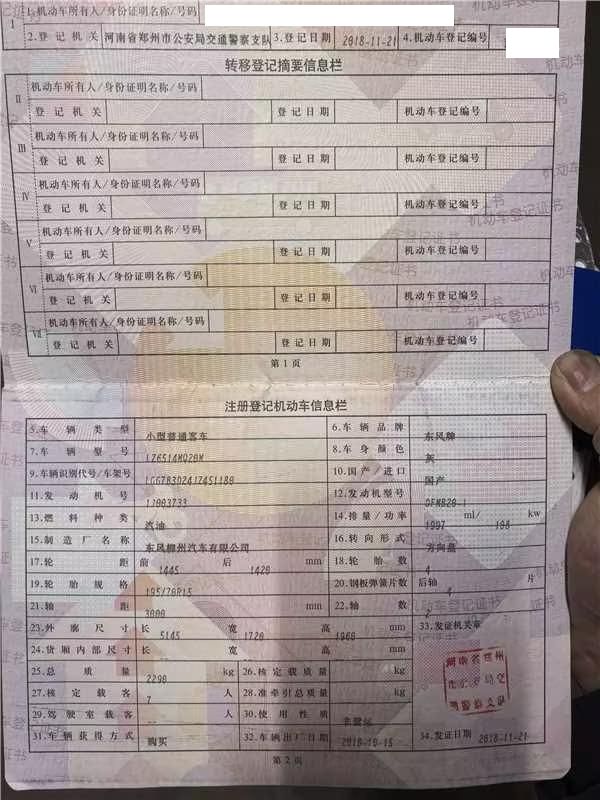 1.机动车所有人/身份证明名称/号码
I 2.登记机关 河南省郑州市公安局交通警察支队 3.登记日期 2018-11-21 4.机动车登记编号
转移登记摘要信息栏
II 机动车所有人/身份证明名称/号码
登记机关 登记日期 机动车登记编号
III 机动车所有人/身份证明名称/号码
登记机关 登记日期 机动车登记编号
IV 机动车所有人/身份证明名称/号码
登记机关 登记日期 机动车登记编号
V 机动车所有人/身份证明名称/号码
登记机关 登记日期 机动车登记编号
VI 机动车所有人/身份证明名称/号码
登记机关 登记日期 机动车登记编号
VII 机动车所有人/身份证明名称/号码
登记机关 登记日期 机动车登记编号
第1页
注册登记机动车信息栏
5.车辆类型 小型普通客车 6.车辆品牌 东风牌
7.车辆型号 LZ6514MQ20M 8.车身颜色 灰
9.车辆识别代号/车架号 10.国产/进口 国产
11.发动机号 12.发动机型号
13.燃料种类 汽油 14.排量/功率 1997 ml/ kw
15.制造厂名称 东风柳州汽车有限公司 16.转向形式 方向盘
17.轮距 前 1445 后 1420 mm 18.轮胎数 4
19.轮胎规格 195/70R15 20.钢板弹簧片数 后轴 4 片
21.轴距 3000 mm 22.轴数 2
23.外廓尺寸 长 5145 宽 1720 高 1960 mm 33.发证机关章
24.货厢内部尺寸 长 宽 高 mm
25.总质量 2290 kg 26.核定载质量 kg
27.核定载客 7 人 28.准牵引总质量 kg
29.驾驶室载客 -- 人 30.使用性质 非营运
31.车辆获得方式 购买 32.车辆出厂日期 2018-10-15 34.发证日期 2018-11-21
第2页